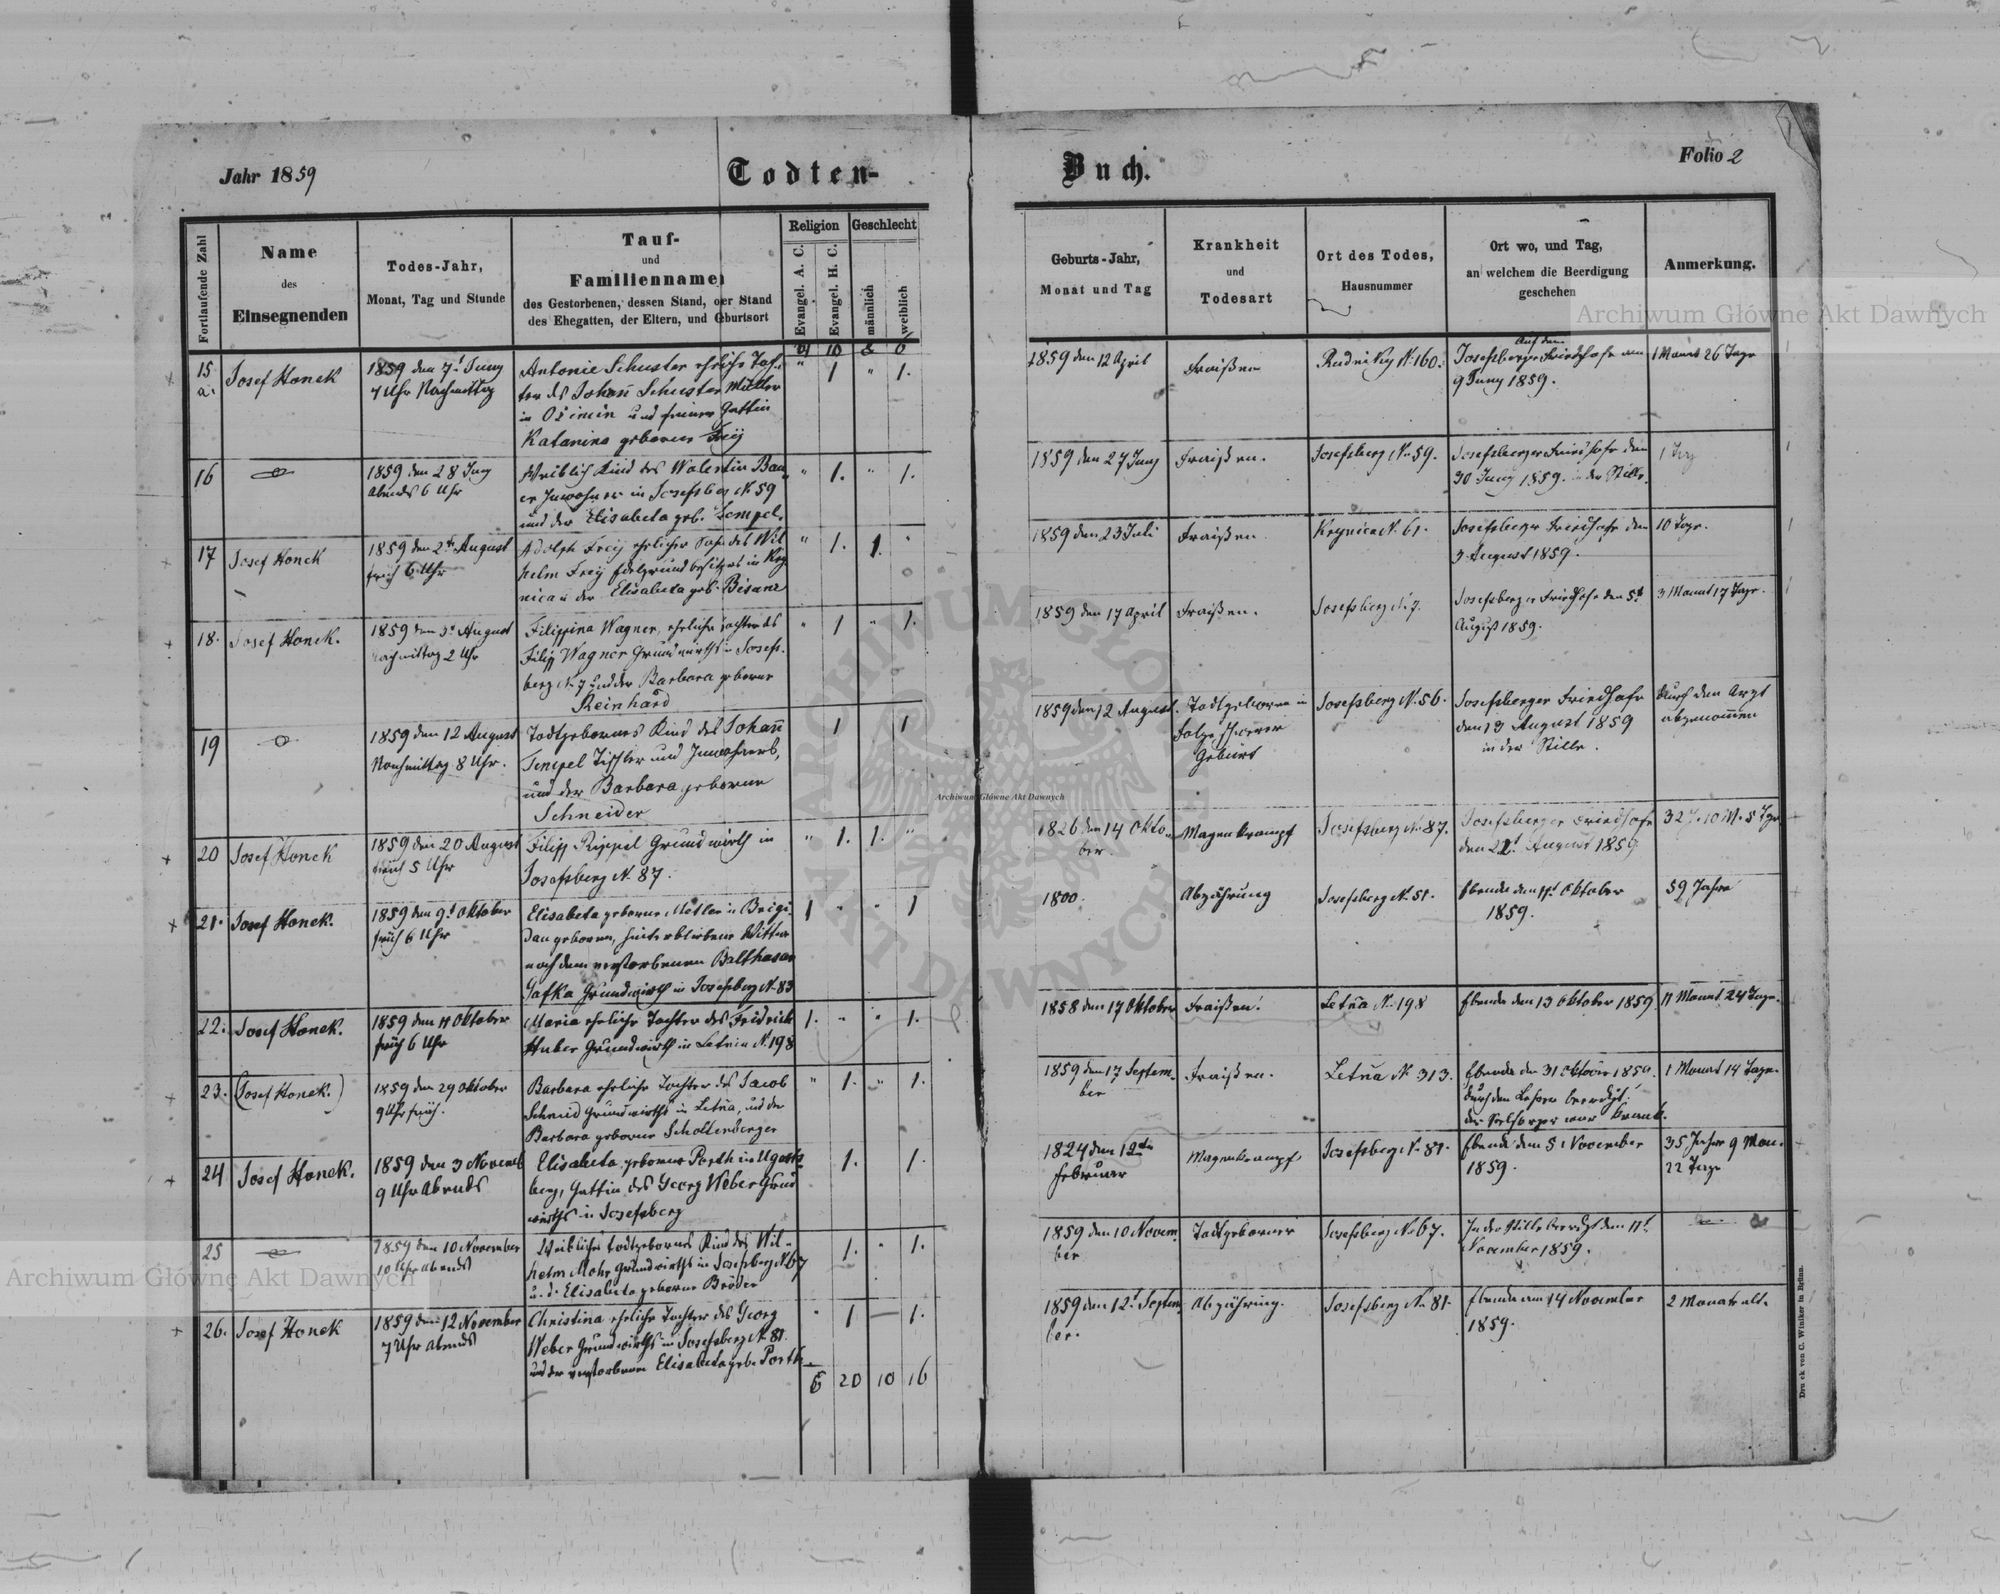 Jahr 1859
Todten-
Buch.
Folio 2
Fortlaufende Zahl
Name
des
Einsegnenden
Todes-Jahr,
Monat, Tag und Stunde
Tauf-
und
Familienname
des Gestorbenen, dessen Stand, oder Stand
des Ehegatten, der Eltern, und Geburtsort
Religion
Evangel. A. C.
Evangel. H. C.
Geschlecht
männlich
weiblich
Geburts-Jahr,
Monat und Tag
Krankheit
und
Todesart
Ort des Todes,
Hausnummer
Ort wo, und Tag,
an welchem die Beerdigung
geschehen
Anmerkung.
10 8 6
15
a.
Josef Honek
1859 den 7t Juny
4 Uhr Nachmittag
Antonie Schuster ehliche Toch-
ter des Johañ Schuster Müller
in Osimin und seiner Gattin
Katarina geborene Freÿ
" 1 " 1.
1859 den 12 April
Fraißen
Rudniky N. 160.
Auf dem
Josefsberger Friedhofe am
9 Juny 1859.
1 Monat 26 Tage
16
1859 den 28 Juny
abends 6 Uhr
Weiblich Kind des Walentin Bau
er Inwohner in Josefsberg N 59
und der Elisabeta geb. Tempel.
" 1. " 1.
1859 den 27 Juny
Fraißen.
Josefsberg N. 59.
Josefsberger Friedhofe den
30 Juny 1859. in der Stille.
1 Tag
17
Josef Honek
1859 den 2t August
früh 6 Uhr
Adolph Freÿ ehlicher Sohn des Wil
helm Freÿ Grundbesitzers in Kry
nica u der Elisabeta geb. Bisanz
" 1. 1. "
1859 den 23 Juli
Fraißen
Krynica N. 61.
Josefsberger Friedhofe den
3 August 1859.
10 Tage.
18.
Josef Honek.
1859 den 3t August
Nachmittag 2 Uhr
Filippina Wagner, ehliche Tochter des
Filipp Wagner Grundwirths in Josefs-
berg N. 7 und der Barbara geborene
Reinhard
" 1 " 1.
1859 den 17 April
Fraißen.
Josefsberg N. 7.
Josefsberger Friedhofe den 5t
August 1859.
3 Monat 17 Tage.
19
1859 den 12 August
Nachmittag 8 Uhr.
Todtgebornes Kind des Johañ
Tempel Tischler und Inwohners,
und der Barbara geborene
Schneider
1 1
1859 den 12 August.
Todtgeboren in
Folge schwerer
Geburt
Josefsberg N. 56.
Josefsberger Friedhofe
den 13 August 1859
in der Stille.
durch den Arzt
abgenommen
20
Josef Honek
1859 den 20 August
früh 5 Uhr
Filipp Rippel Grundwirth in
Josefsberg N. 87.
" 1. 1. "
1826 den 14 Okto-
ber.
Magenkrampf
Josefsberg N. 87.
Josefsberger Friedhofe
den 22t August 1859
32 J. 10 M. 5 Tge
21.
Josef Honek.
1859 den 9t Oktober
früh 6 Uhr
Elisabeta geborene Metler in Brigi-
dau geboren, hinterbliebene Wittwe
nach dem verstorbenen Balthasar
Jafka Grundwirth in Josefsberg N. 83
1 " " 1
1800.
Abzährung
Josefsberg N. 51.
Ebenda den 11t Oktober
1859.
59 Jahre
22.
Josef Honek.
1859 den 11 Oktober
früh 6 Uhr
Maria ehliche Tochter des Fridrich
Huber Grundwirth in Letnia N. 198
1. " " 1.
1858 den 17 Oktober
Fraißen.
Letña N. 198
Ebenda den 13 Oktober 1859
11 Monat 24 Tage.
23.
(Josef Honek.)
1859 den 29 Oktober
9 Uhr früh.
Barbara ehliche Tochter des Jacob
Schmid Grundwirths in Letña, und der
Barbara geborene Schollenberger
" 1. " 1.
1859 den 17 Septem-
ber
Fraißen.
Letña N. 313.
Ebenda den 31 Oktober 1859.
durch den Lehrer beerdigt.
der Seelsorger war krank.
1 Monat 14 Tage.
24
Josef Honek.
1859 den 3 Novemb
9 Uhr Abends
Elisabeta, geborene Porth in Ugarts-
berg, Gattin des Georg Weber Grund
wirths in Josefsberg
1. 1.
1824 den 12ten
Februar
Magenkrampf
Josefsberg N. 81.
Ebenda den 5 November
1859.
35 Jahre 9 Mon.
22 Tage
25
1859 den 10 November
10 Uhr abends
Weibliches todtgebornes Kind des Wil-
helm Mohr, Grundwirths in Josefsberg N. 67
u. d. Elisabeta geborene Bröder
1. " 1.
1859 den 10 Novem-
ber
Todtgeboren
Josefsberg N. 67.
In der Stille beerdigt den 11t
November 1859.
26.
Josef Honek
1859 den 12 November
7 Uhr abends
Christina ehliche Tochter des Georg
Weber Grundwirths in Josefsberg N. 81.
und der verstorbenen Elisabeta geb. Porth
" 1 — 1.
1859 den 12t Septem-
ber.
Abzährung.
Josefsberg N. 81.
Ebenda am 14 November
1859.
2 Monate alt.
6 20 10 16
Druck von C. Winiker in Brünn.
Archiwum Główne Akt Dawnych
Archiwum Główne Akt Dawnych
Archiwum Główne Akt Dawnych
ARCHIWUM GŁÓWNE AKT DAWNYCH